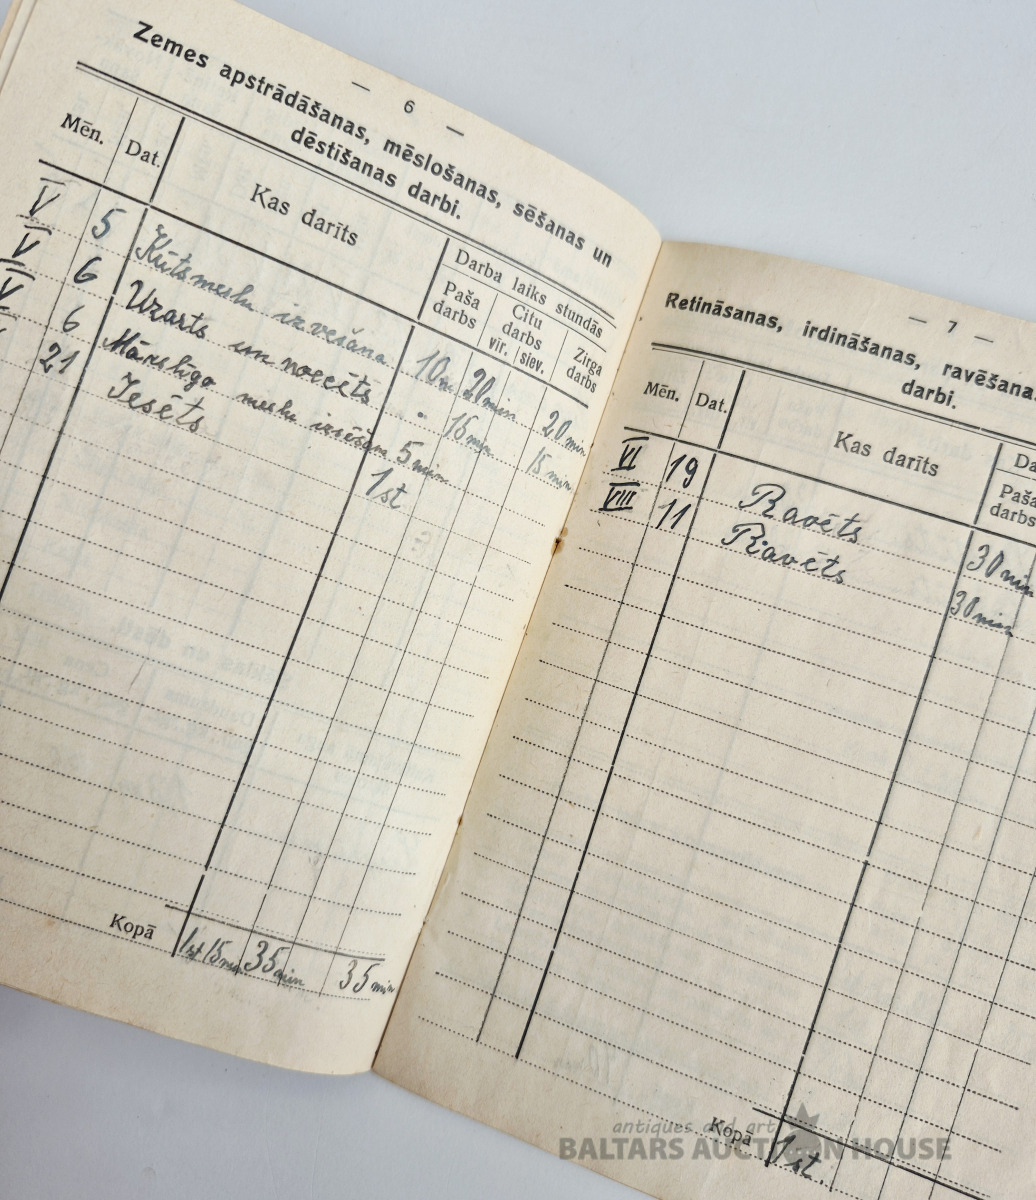 — 6 —
Zemes apstrādāšanas, mēslošanas, sēšanas un
dēstīšanas darbi.
Mēn. Dat. Kas darīts Darba laiks stundās
Paša darbs Citu darbs vir. siev. Zirga darbs
V 5 Kūtsmēslu izvešana 10m 20min 20min
V 6 Uzarts un noecēts " 15min 15min
V 6 Mākslīgo mēslu izsēšan 5min
21 Iesēts 1st
Kopā 1st 15min 35min 35min
— 7 —
Retināšanas, irdināšanas, ravēšanas
darbi.
Mēn. Dat. Kas darīts Da
Paša
darbs
VI 19 Ravēts 30min
VIII 11 Ravēts 30min
Kopā 1st.
antiques and art
BALTARS AUCTION HOUSE